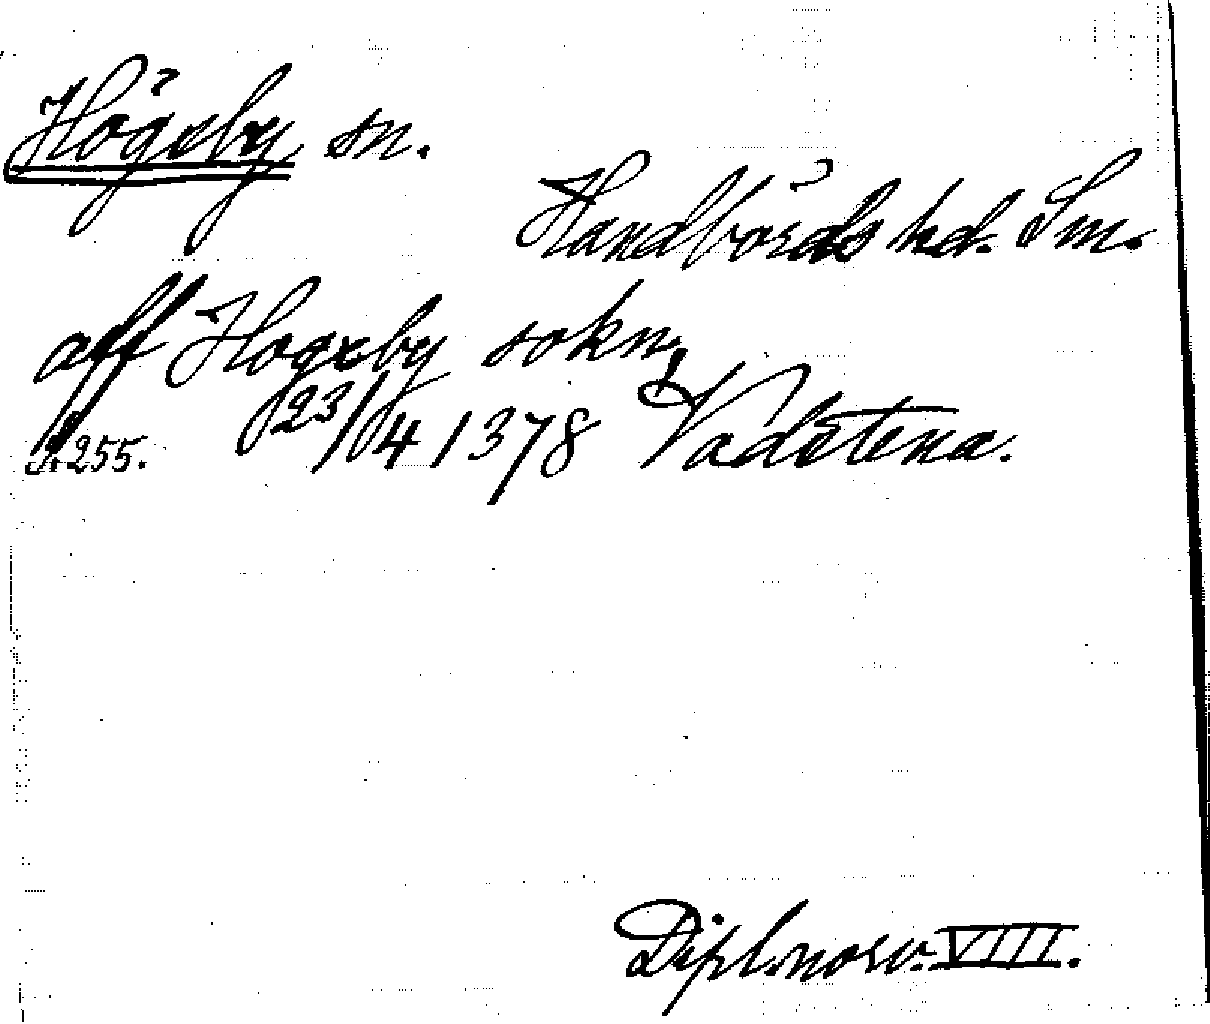 Högsby sn.
Handbörds hd. Sm.
aff Hogxby sokn,
s. 255. 23/4 1378 Vadstena.
Dipl. norv. VIII.